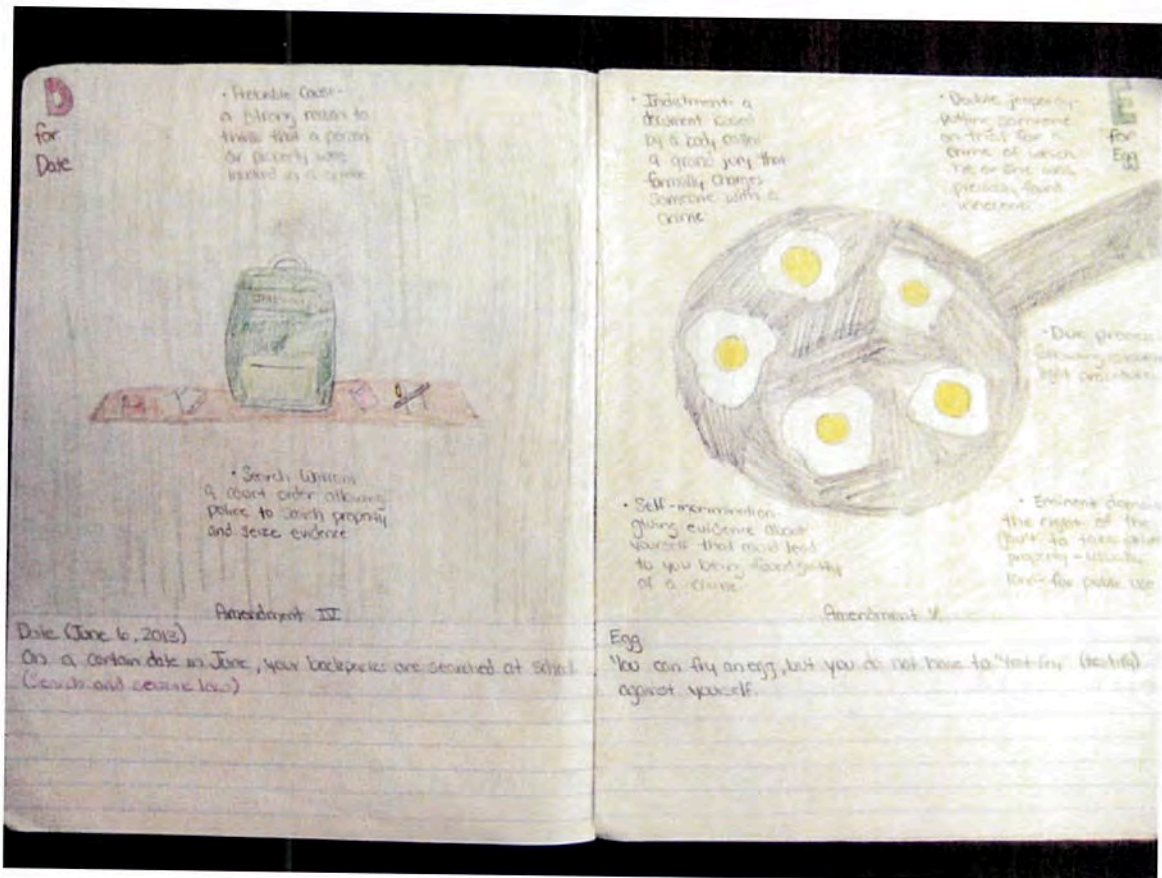 D
for
Date
• Probable Cause-
a strong reason to
think that a person
or property was
involved in a crime
• Search Warrant
a court order allowing
police to search property
and seize evidence
Amendment IV
Date (June 6, 2013)
On a certain date in June, your backpacks are searched at school.
(search and seizure law)
E
for
Egg
• Indictment- a
document issued
by a body called
a grand jury that
formally charges
someone with a
crime
• Double jeopardy-
putting someone
on trial for a
crime of which
he or she was
previously found
innocent
• Due process
following
legal procedures
• Self-incrimination-
giving evidence about
yourself that could lead
to you being found guilty
of a crime
• Eminent domain
the right of the
gov't to take private
property - usually
land - for public use
Amendment V
Egg
You can fry an egg, but you do not have to "test-fry" (testify)
against yourself.